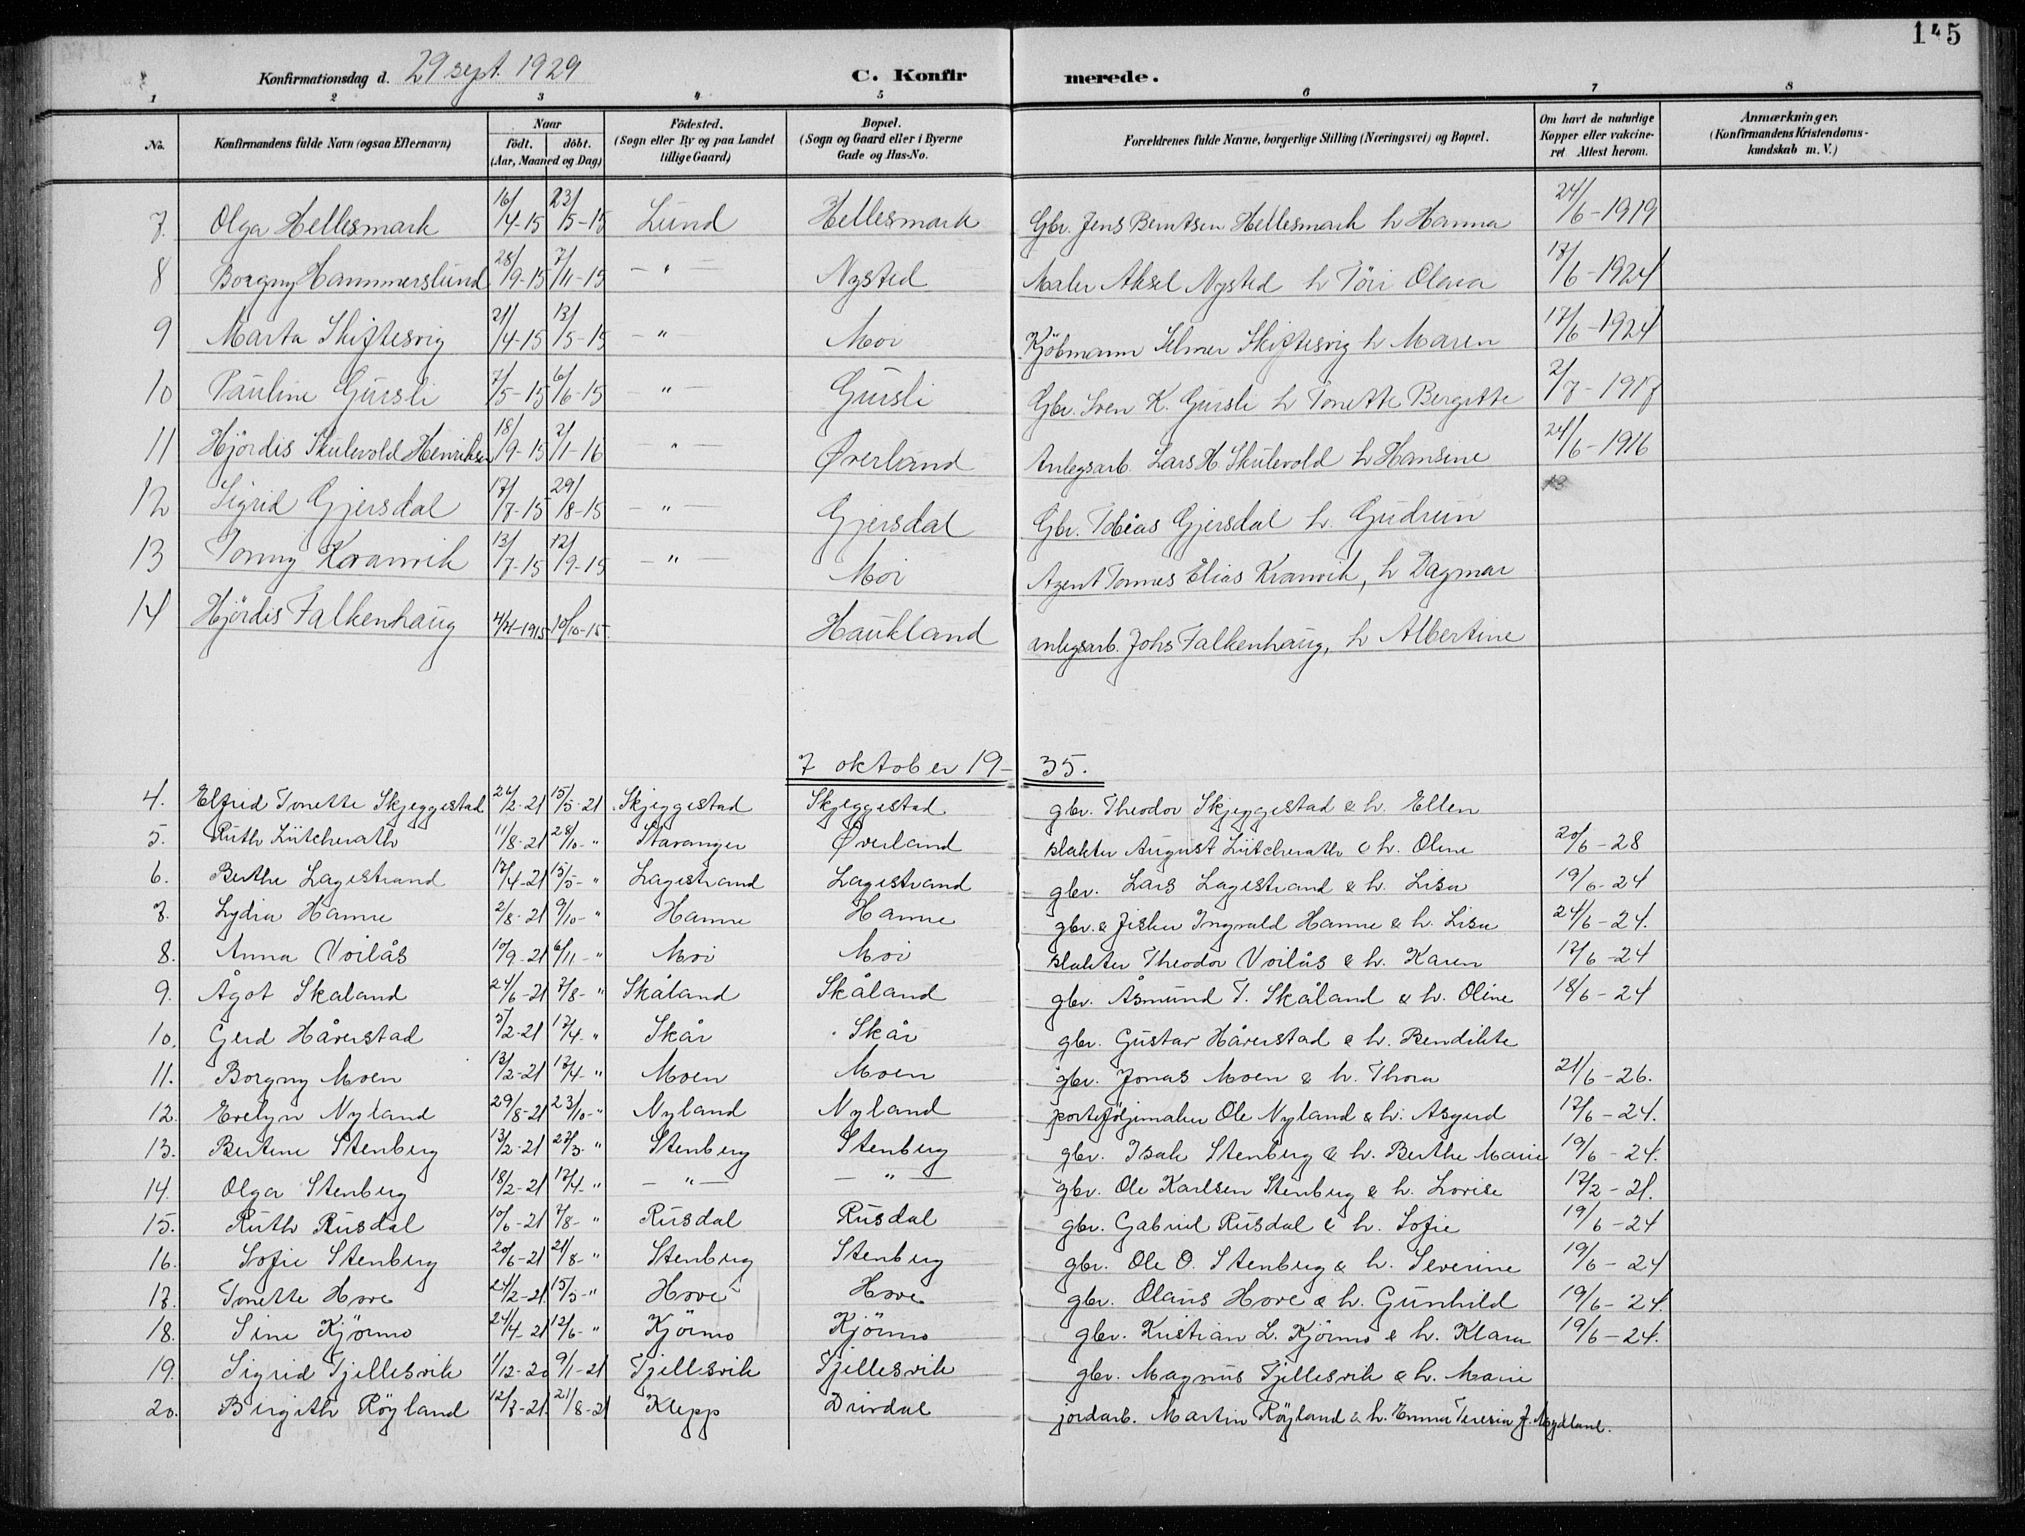 145
Konfirmationsdag d. 29 sept. 1929 C. Konfirmerede.
1 2 3 4 5 6 7 8
No. Konfirmandens fulde Navn (ogsaa Efternavn) Naar født. døbt. (Aar, Maaned og Dag) Fødested. (Sogn eller By og paa Landet tillige Gaard) Bopæl. (Sogn og Gaard eller i Byerne Gade og Hus-No. Forældrenes fulde Navne, borgerlige Stilling (Næringsvei) og Bopæl. Om havt de naturlige Kopper eller vakcineret Attest herom. Anmærkninger. (Konfirmandens Kristendomskundskab m. V.)
7. Olga Hellesmark 16/4-15 23/5-15 Lund Hellesmark Gbr. Jens Berntsen Hellesmark h Hanna 24/6-1919
8 Borgny Hammerslund 28/9-15 7/11-15 — " — Nysted Maler Aksel Nysted h Töri Olava 17/6-1924
9 Marta Skiftesvig 21/4-15 13/5-15 — " — Moi Kjöbmann Selmer Skiftesvig h Maren 17/6-1924
10 Pauline Gursli 7/5-15 6/6-15 — " — Gursli Gbr. Sven K. Gursli h Tonette Bergitte 2/7-1917
11 Hjördis Skulevold Henriksen 18/9-15 2/1-16 — " — Øverland Anlegsarb. Lars H. Skulevold h Hansine 24/6-1916
12 Sigrid Gjersdal 17/7-15 29/8-15 — " — Gjersdal Gbr. Tobias Gjersdal h. Gudrun
13 Tonny Kvanvik 13/7-15 12/9-15 — " — Moi Agent Tomas Elias Kvanvik, h Dagmar
14 Hjördis Falkenhaug 1915 10/10-15 Haukland anlegsarb. Johs Falkenhaug, h Albertine
7 oktober 19-35.
4. Elfrid Tonette Skjeggestad 26/2-21 15/5-21 Skjeggestad Skjeggestad gbr. Theodor Skjeggestad & h. Ellen
5. Ruth Lütcherath 11/8-21 28/10- " Stavanger Øverland slakter August Lütcherath & h. Oline 20/6-28
6. Berthe Lagestrand 17/4-21 15/5- " Lagestrand Lagestrand gbr. Lars Lagestrand & h. Lisa 19/6-24
7. Lydia Hamre 2/8-21 9/10- " Hamre Hamre gbr. & fisker Ingvald Hamre & h. Lisa 24/6-24.
8. Anna Voilås 10/9-21 6/11- " Moi Moi slakter Theodor Voilås & h. Karen 17/6-24
9. Ågot Skåland 24/6-21 7/8- " Skåland Skåland gbr. Åsmund T. Skåland & h. Oline 18/6-24
10. Gerd Håverstad 5/2-21 17/4- " Skår Skår gbr. Gustav Håverstad & h. Bendikte
11. Borgny Moen 13/2-21 17/4- " Moen Moen gbr. Jonas Moen & h. Thora 21/6-26.
12. Evelyn Nyland 29/8-21 23/10- " Nyland Nyland porteføljemaker Ole Nyland & h. Asgerd 17/6-24.
13. Bertine Stenberg 13/2-21 27/3- " Stenberg Stenberg gbr. Isak Stenberg & h. Berthe Marie 19/6-24.
14. Olga Stenberg 18/2-21 17/4- " — " — — " — gbr. Ole Karlsen Stenberg & h. Lovise 17/2-21.
15. Ruth Rusdal 10/6-21 7/8- " Rusdal Rusdal gbr. Gabriel Rusdal & h. Sofie 19/6-24
16. Sofie Stenberg 20/6-21 21/8- " Stenberg Stenberg gbr. Ole O. Stenberg & h. Severine 19/6-24
17. Tonette Hove 24/2-21 15/5- " Hove Hove gbr. Olaus Hove & h. Gunhild 19/6-24.
18. Sine Kjörmo 24/4-21 12/6- " Kjörmo Kjörmo gbr. Kristian L. Kjörmo & h. Klara 19/6-24.
19. Sigrid Tjellesvik 1/12-20 9/1-21 Tjellesvik Tjellesvik gbr. Magnus Tjellesvik & h. Marie
20. Birgith Röyland 12/7-21. 21/8-21 Klepp Drivdal jordarb. Martin Röyland & h. Emma Teresia f. Mydland.